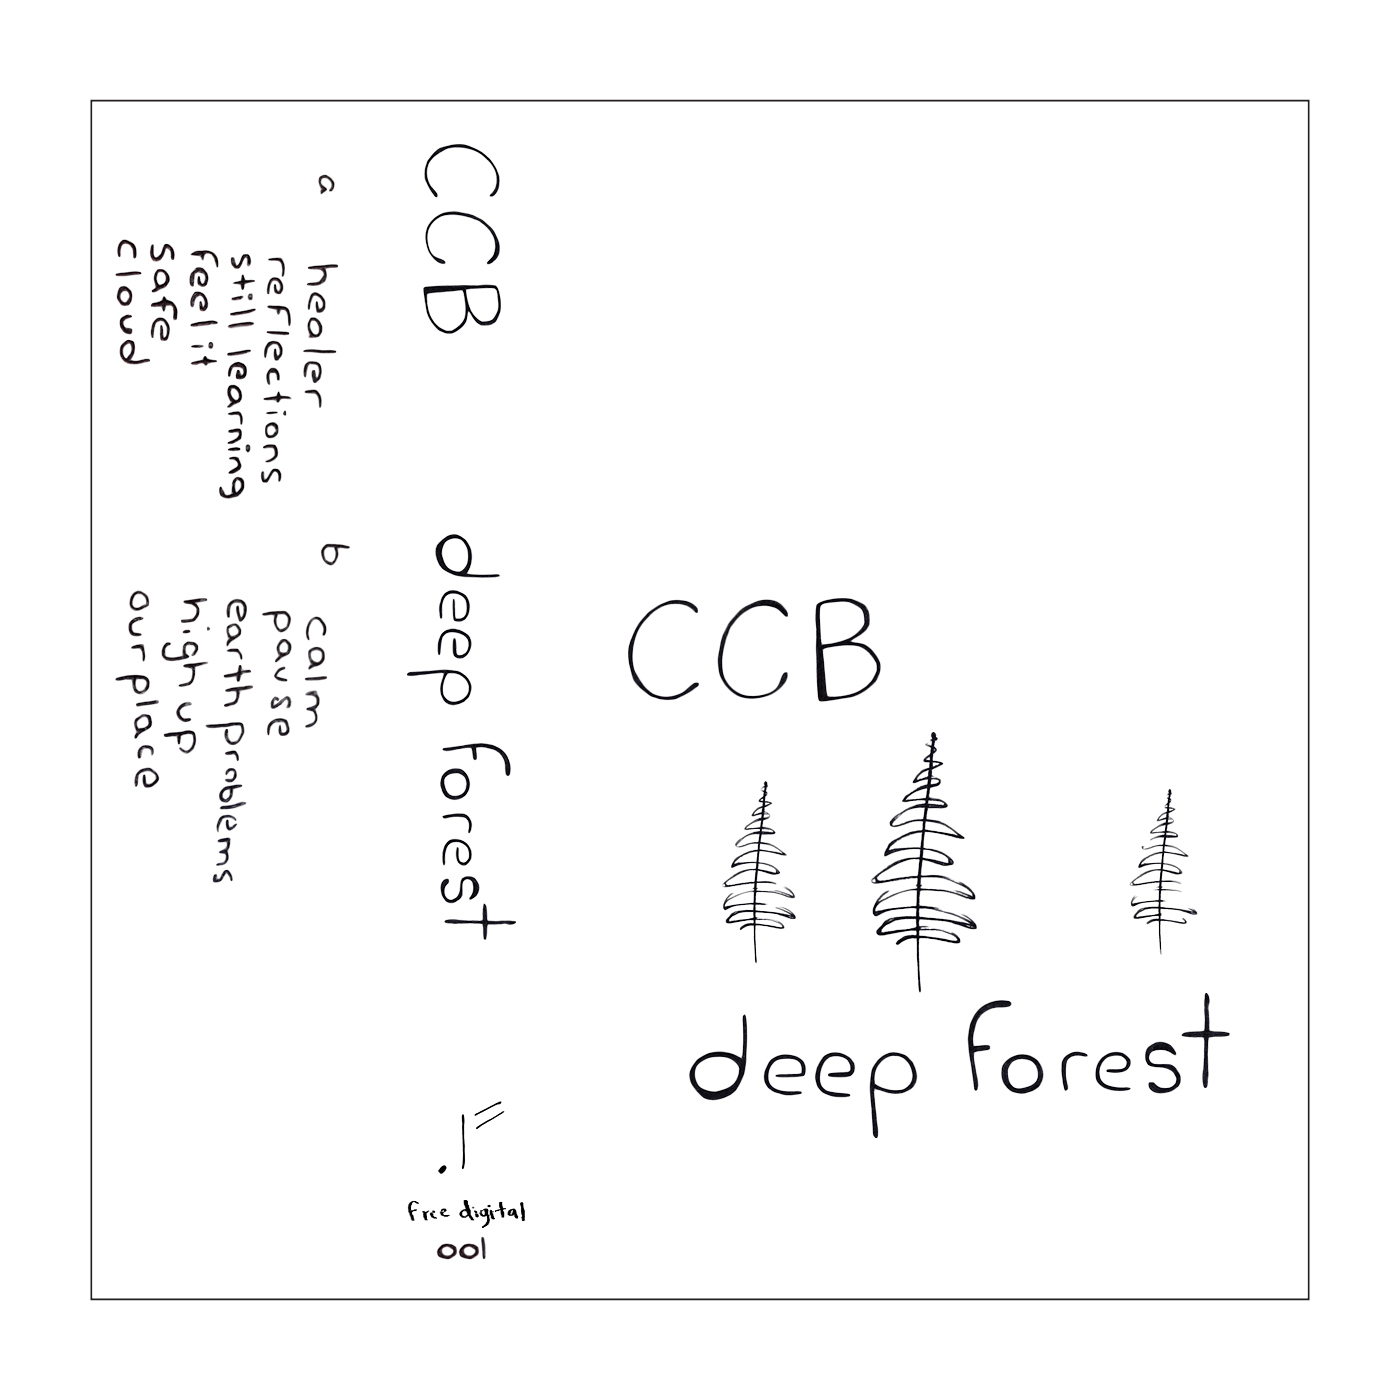 a
healer
reflections
still learning
feel it
safe
cloud
b
calm
pause
earth problems
high up
our place
CCB
deep forest
free digital
001
CCB
deep forest